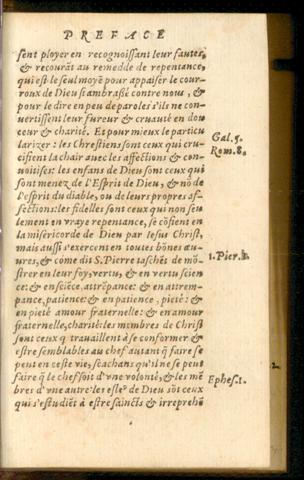 PREFACE
sent ployer en recognoissant leur fautes,
& recourāt au remedde de repentance,
qui est le seul moyē pour appaiser le cour-
roux de Dieu si ambrasé contre nous, &
pour le dire en peu de paroles s'ils ne con-
vertissent leur fureur & cruauté en dou
ceur & charité. Et pour mieux le particu
larizer : les Chrestiens sont ceux qui cru-
cifient la chair avec les affections & con-
Gal. 5.
voitises: les enfans de Dieu sont ceux qui
Rom. 8.
sont menez de l'Esprit de Dieu, & nō de
l'esprit du diable, ou de leurs propres af-
fections: les fidelles sont ceux qui non seu
lement en vraye repentance, se cōfient en
la misericorde de Dieu par Iesus Christ,
mais aussi s'exercent en toutes bōnes œu-
ures, & cōme dit S. Pierre taschēt de mō-
1. Pier.
strer en leur foy, vertu, & en vertu scien-
ce: & en sciēce, attrēpance: & en attrem-
pance, patience: & en patience, pieté: &
en pieté amour fraternelle: & en amour
fraternelle, charité: les mimbres de Christ
sont ceux q̄ travaillent à se conformer &
estre semblables au chef autant q̄ faire se
peut en ceste vie, scachans qu'il ne se peut
faire q̄ le chef soit d'vne volonté, & les mē
Ephes. 1.
bres d'vne autre: les eslez de Dieu sōt ceux
qui s'estudiēt à estre saincts & irreprehē